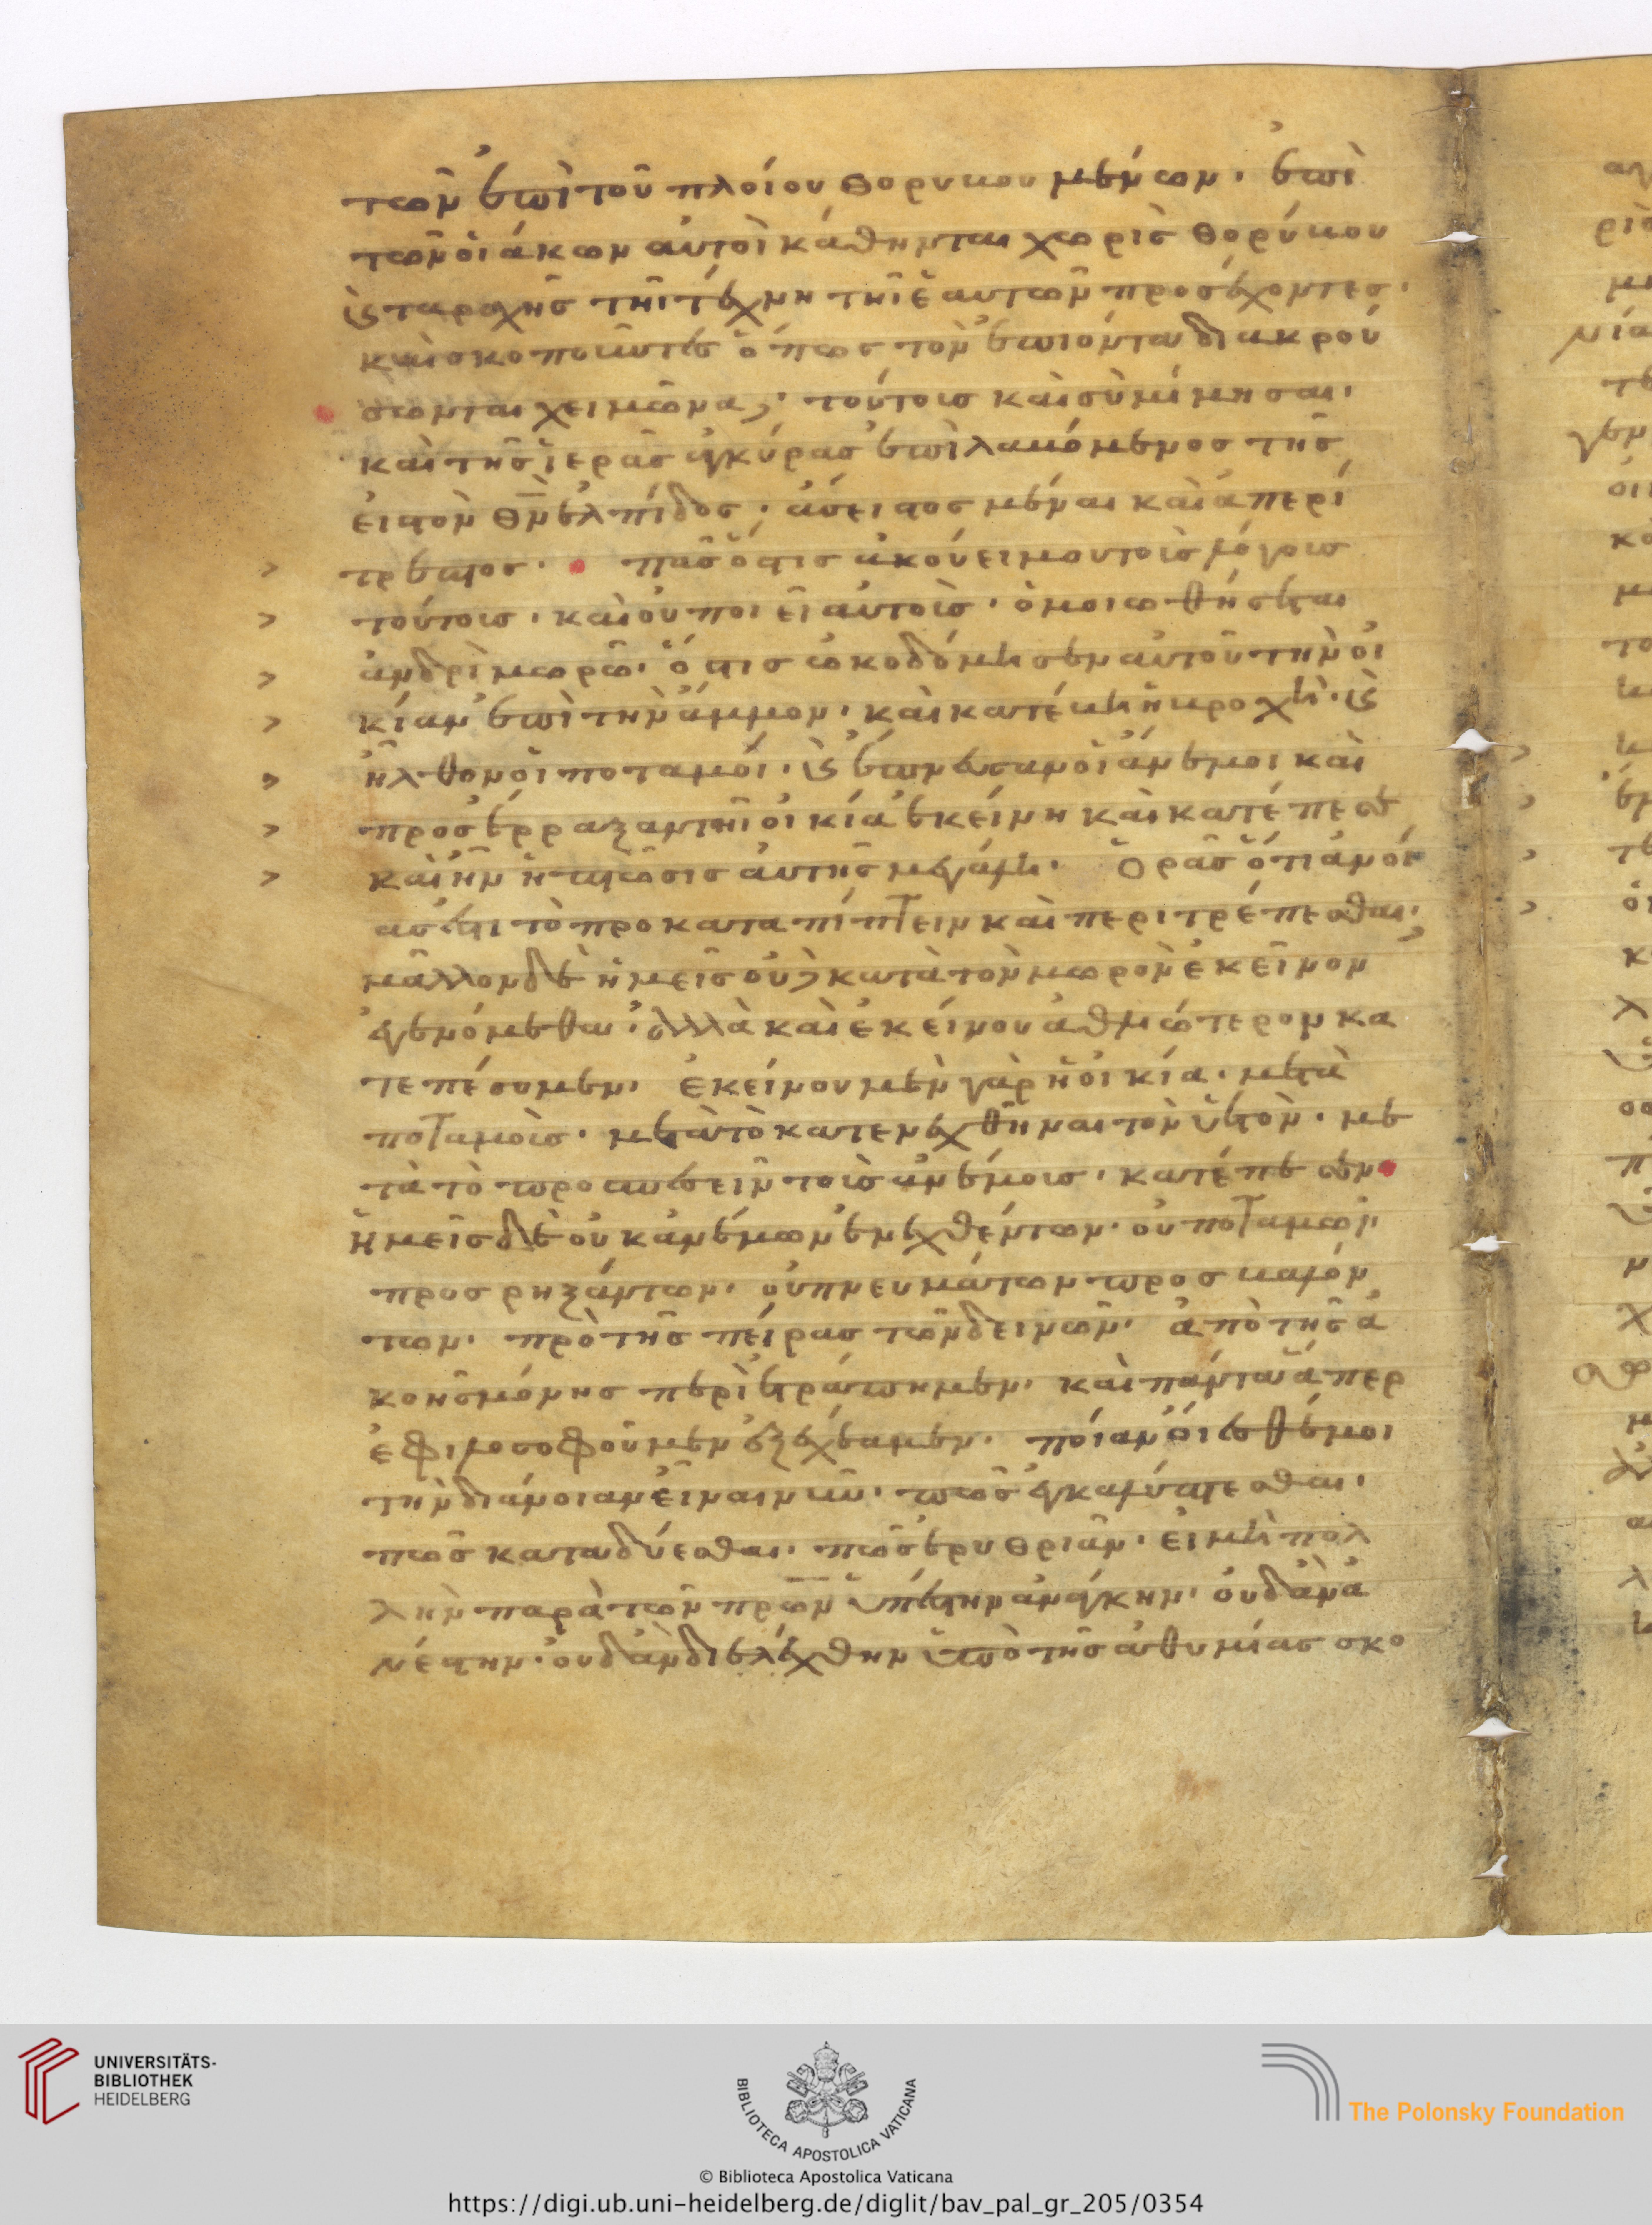 τῶν ἐπὶ τοῦ πλοίου θορυβουμένων· ἐπὶ
τῶν οἰάκων αὐτοὶ κάθηνται χωρὶς θορύβου
καὶ ταραχῆς τῆι τέχνη τῆι ἑαυτῶν προσέχοντες·
καὶ σκοποῦντες ὅπως τὸν ἐπιόντα διακρού
σωνται χειμῶνα· τούτοις καὶ σὺ μίμησαι·
καὶ τῆς ἱερᾶς ἀγκύρας ἐπιλαβόμενος τῆς
εἰς τὸν θν ἐλπίδος· ἄσειστος μέναι καὶ ἀπερί
τρεπτος· πᾶς ὅστις ἀκούει μου τοῖς λόγοις
τούτοις· καὶ οὐ ποιεῖ αὐτοῖς· ὁμοιωθήσεται
ἀνδρὶ μωρῶ· ὅστις ὠκοδόμησεν αὐτοῦ τὴν οἰ
κίαν ἐπὶ τὴν ἄμμον· καὶ κατέβη ἡ βροχὴ· καὶ
ἦλθον οἱ ποταμοί· καὶ ἔπνευσαν οἱ ἄνεμοι καὶ
προσέρραξαν τῆι οἰκία ἐκείνη καὶ κατέπεσε
καὶ ἦν ἡ πτῶσις αὐτῆς μεγάλη· Ὁρᾶς ὅτι ἀνοί
ας ἐστι τὸ προκαταπίπτειν καὶ περιτρέπεσθαι·
μᾶλλον δὲ ἡμεῖς οὐ κατὰ τὸν μωρὸν ἐκεῖνον
ἐγενόμεθα· ἀλλὰ καὶ ἐκείνου ἀθλιώτερον κα
τεπέσομεν· ἐκείνου μὲν γὰρ ἡ οἰκία· μετὰ
ποταμοὺς· μετὰ τὸ κατενεχθῆναι τὸν ὑετὸν· με
τὰ τὸ προσπεσεῖν τοὺς ἀνέμους· κατέπεσεν
ἡμεῖς δὲ οὐκ ἀνέμων ἐνεχθέντων· οὐ ποταμῶν
προσρηξάντων· οὐ πνευμάτων προσβαλόν
των· πρὸ τῆς πείρας τῶν δεινῶν· ἀπὸ τῆς ἀ
κοῆς μόνης περιετράπημεν· καὶ πάντα ἅπερ
ἐφιλοσοφοῦμεν ἐξεχέαμεν· ποίαν οἴεσθέ μοι
τὴν διάνοιαν εἶναι νῦν· πῶς ἐγκαλύπτεσθαι·
πῶς καταδύεσθαι· πῶς ἐρυθριᾶν· εἰ μὴ πολ
λὴν παρὰ τῶν πρων ὑπέστην ἀνάγκην· οὐδ' ἂν ἀ
νέστην· οὐδ' ἂν διελέχθην ὑπὸ τῆς ἀθυμίας σκο
UNIVERSITÄTS-
BIBLIOTHEK
HEIDELBERG
BIBLIOTECA APOSTOLICA VATICANA
The Polonsky Foundation
© Biblioteca Apostolica Vaticana
https://digi.ub.uni-heidelberg.de/diglit/bav_pal_gr_205/0354